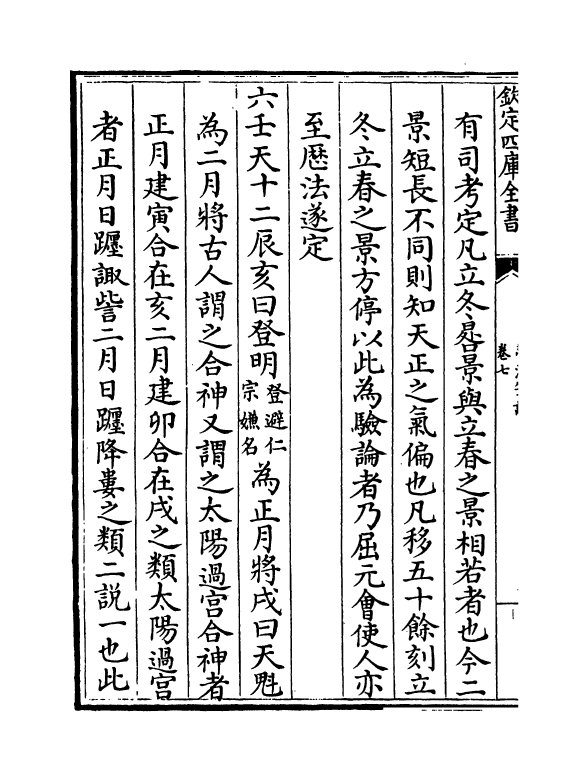 欽定四庫全書
卷七
有司考定凡立冬晷景與立春之景相若者也今二
景短長不同則知天正之氣偏也凡移五十餘刻立
冬立春之景方停以此為驗論者乃屈元會使人亦
至厯法遂定
六壬天十二辰亥曰登明登避仁宗嫌名為正月將戌曰天魁
為二月將古人謂之合神又謂之太陽過宫合神者
正月建寅合在亥二月建卯合在戌之類太陽過宫
者正月日躔諏訾二月日躔降婁之類二説一也此